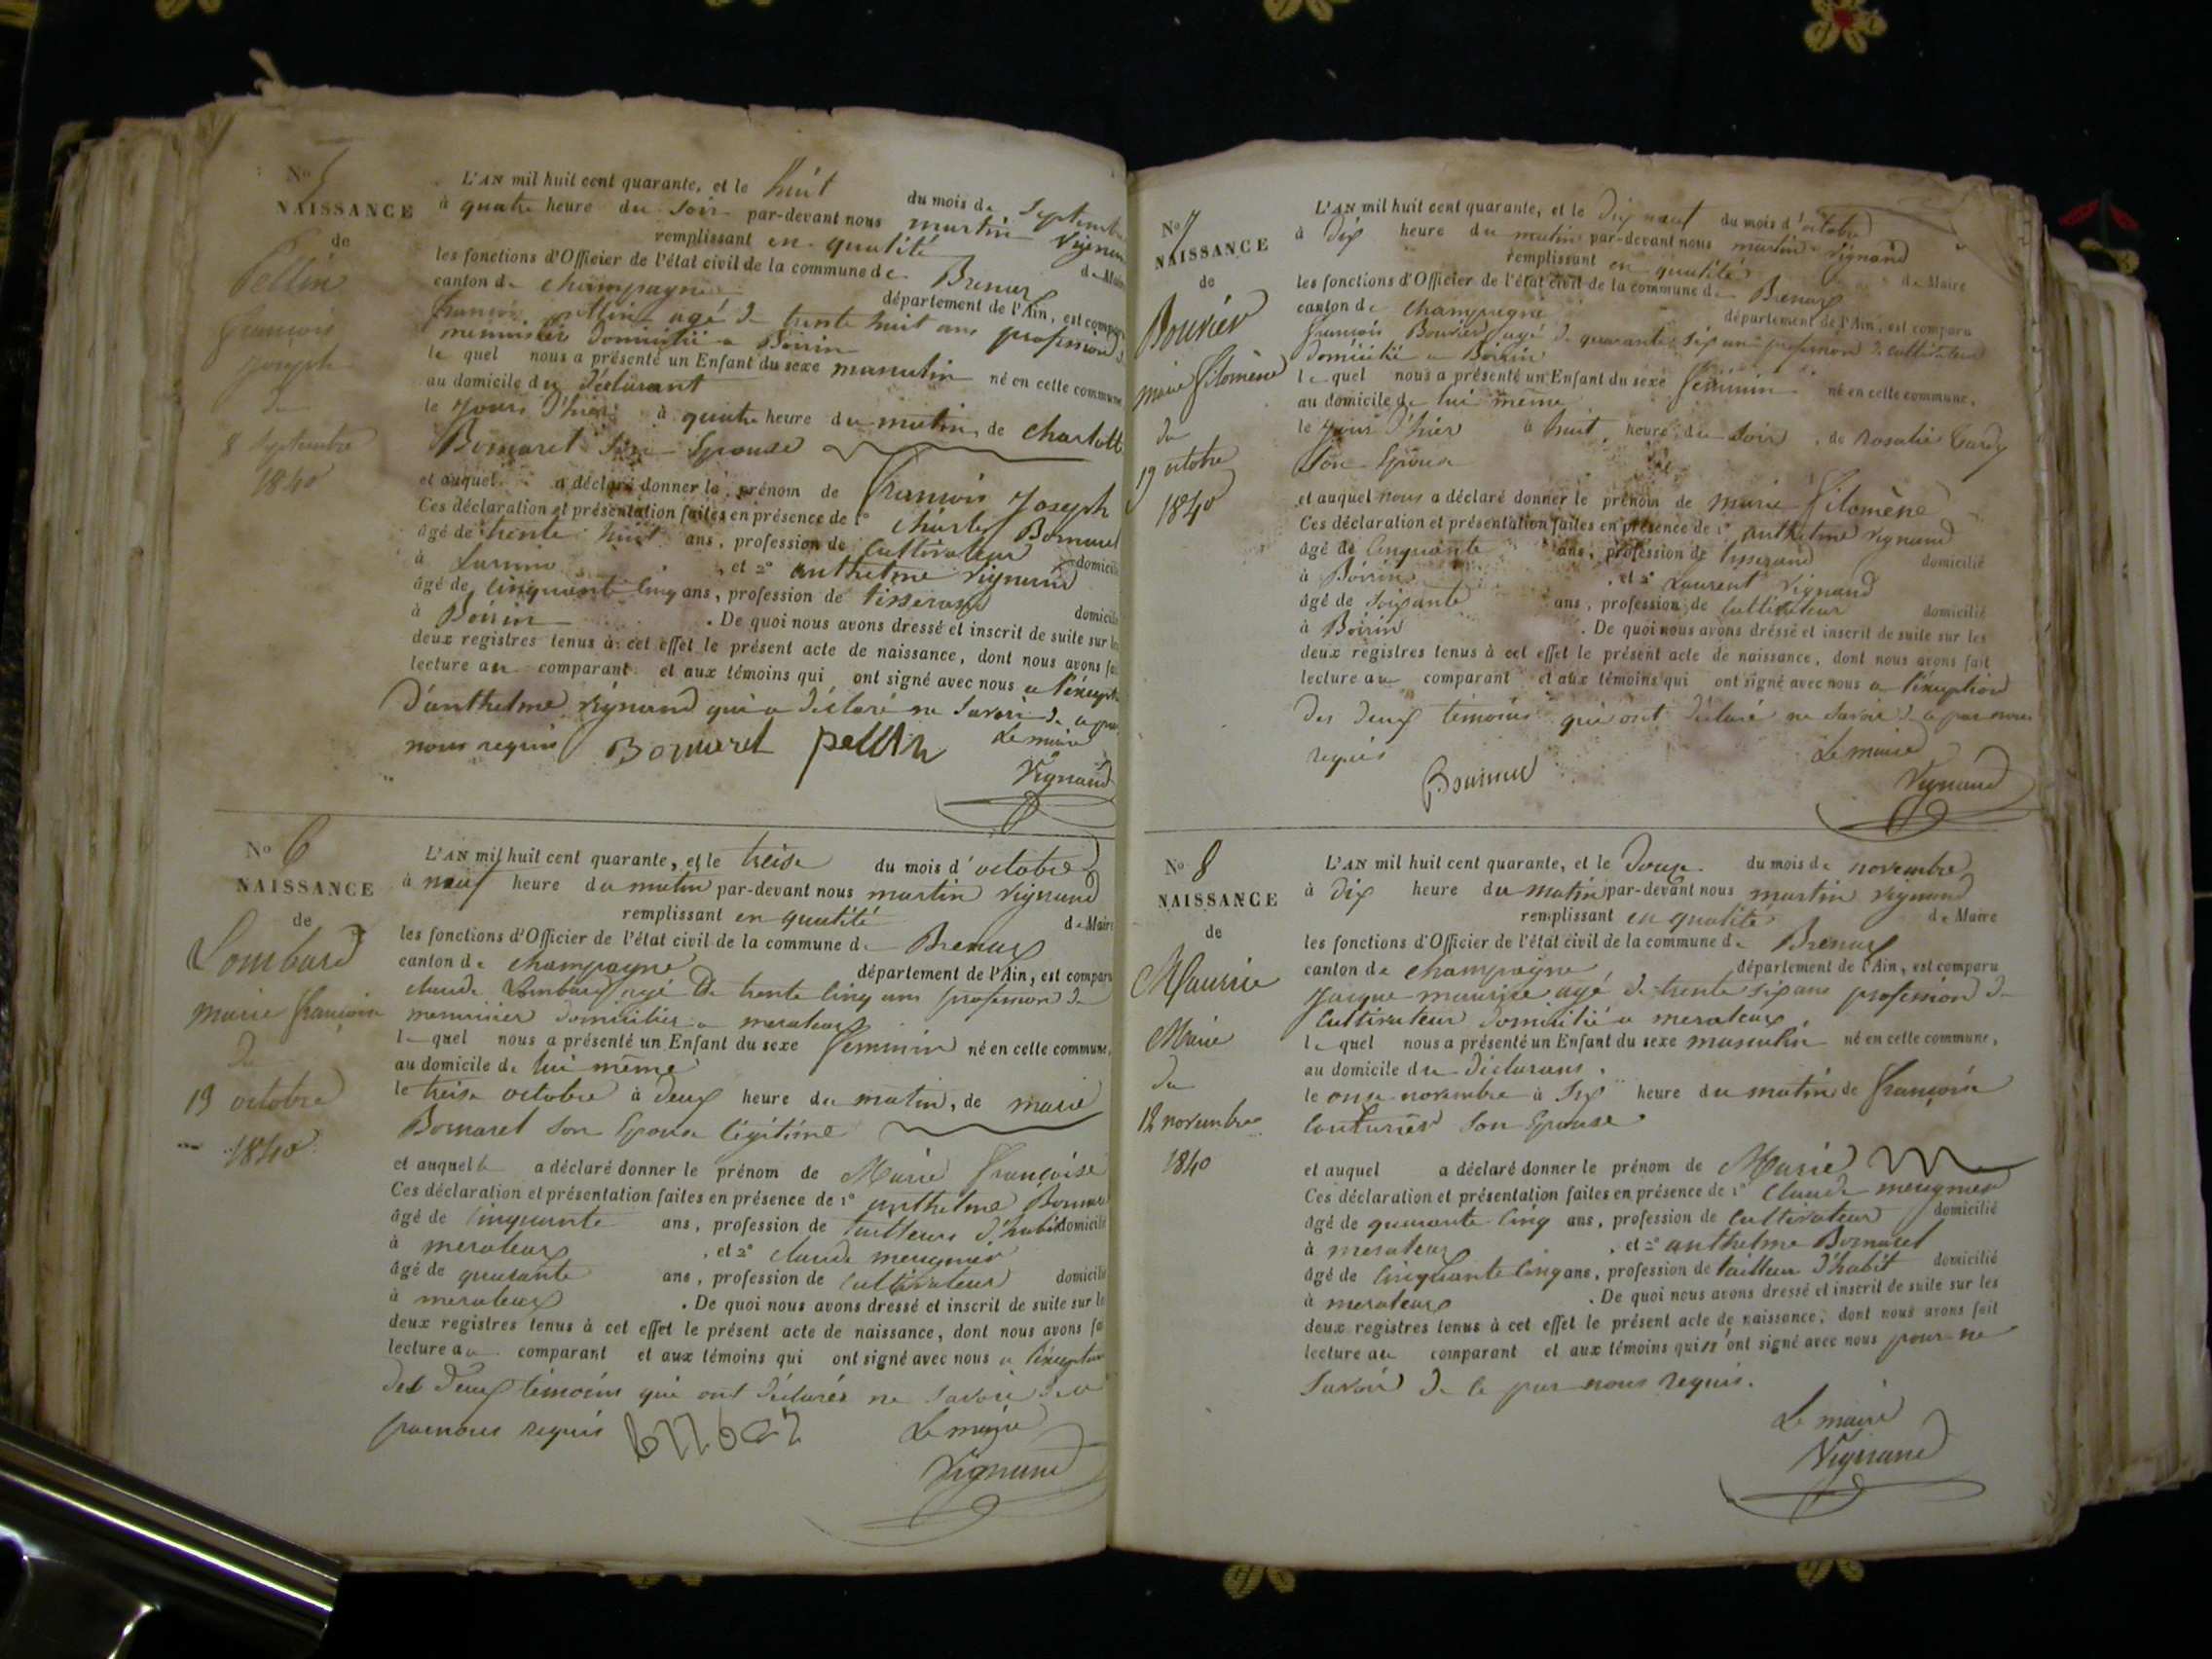 No 5
NAISSANCE
de
Pellin
françois
joseph
du
8 Septembre
1840
L'AN mil huit cent quarante, et le huit du mois de Septembre
à quatre heure du Soir par-devant nous martin Vignand
remplissant en qualité de Maire
les fonctions d'Officier de l'état civil de la commune de Brenax
canton de champagne département de l'Ain, est comparu
françois pellin agé de trente huit ans profession de
menuisier domicilié a Boirin
le quel nous a présenté un Enfant du sexe masculin né en cette commune
au domicile du déclarant
le jour d'hier à quatre heure du matin, de charlotte
Bornaret Son Epouse
et auquel a déclaré donner le prénom de françois Joseph
Ces déclaration et présentation faites en présence de 1° charles Bornaret
âgé de trente huit ans, profession de Cultivateur domicilié
à , et 2° anthelme vignand
âgé de cinquante cinq ans, profession de tisserand domicilié
à Boirin . De quoi nous avons dressé et inscrit de suite sur les
deux registres tenus à cet effet le présent acte de naissance, dont nous avons fai
lecture au comparant et aux témoins qui ont signé avec nous a l'éxeption
D'anthelme vignand qui a déclaré ne Savoir de ce par
nous requis Bornaret pellin Le maire
Vignand
No 6
NAISSANCE
de
Lombard
marie françoise
du
13 octobre
1840
L'AN mil huit cent quarante, et le treise du mois d'octobre
à neuf heure du matin par-devant nous martin vignand
remplissant en qualité de Maire
les fonctions d'Officier de l'état civil de la commune de Brenax
canton de champagne département de l'Ain, est comparu
claude Lombard agé De trente cinq ans profession de
menuisier domicilier a merateax
le quel nous a présenté un Enfant du sexe feminin né en cette commune,
au domicile de lui même
le treise octobre à deux heure du matin, de marie
Bornaret Son Epouse légitime
et auquel a déclaré donner le prénom de Marie françoise
Ces déclaration et présentation faites en présence de 1° anthelme Bornaret
âgé de cinquante ans, profession de tailleur d'habit domicilié
à merateax , et 2° claude meugnier
âgé de quarante ans, profession de cultivateur domicilié
à merateax . De quoi nous avons dressé et inscrit de suite sur les
deux registres tenus à cet effet le présent acte de naissance, dont nous avons fai
lecture au comparant et aux témoins qui ont signé avec nous a l'éxeption
Des Deux témoins qui ont déclarés ne Savoir de ce
par nous requis Le maire
Vignand
No 7
NAISSANCE
de
Bouvier
marie filomène
du
19 octobre
1840
L'AN mil huit cent quarante, et le Dix neuf du mois d'octobre
à Dix heure du matin par-devant nous martin vignand
remplissant en qualité de Maire
les fonctions d'Officier de l'état civil de la commune de Brenax
canton de champagne département de l'Ain, est comparu
françois Bouvier agé de quarante six ans profession de cultivateur
domicilié a Boirin
le quel nous a présenté un Enfant du sexe féminin né en cette commune,
au domicile de lui même
le jour d'hier à huit heure du Soir, de rosalie tardy
Son Epouse
et auquel nous a déclaré donner le prénom de marie filomène
Ces déclaration et présentation faites en présence de 1° anthelme vignand
âgé de cinquante ans, profession de tisserand domicilié
à Boirin , et 2° Laurent vignand
âgé de soixante ans, profession de cultivateur domicilié
à Boirin . De quoi nous avons dressé et inscrit de suite sur les
deux registres tenus à cet effet le présent acte de naissance, dont nous avons fait
lecture au comparant et aux témoins qui ont signé avec nous a l'éxeption
Des Deux témoins qui ont déclaré ne Savoir de ce par nous
requis Le maire
Vignand
No 8
NAISSANCE
de
Maurice
Marie
du
12 novembre
1840
L'AN mil huit cent quarante, et le Douze du mois de novembre
à Dix heure du matin par-devant nous martin vignand
remplissant en qualité de Maire
les fonctions d'Officier de l'état civil de la commune de Brenax
canton de champagne département de l'Ain, est comparu
Jacque maurice agé de trente six ans profession de
cultivateur domicilié a merateax
le quel nous a présenté un Enfant du sexe masculin né en cette commune,
au domicile du déclarans
le onze novembre à Six heure du matin de françoise
couturier Son Epouse
et auquel a déclaré donner le prénom de Marie
Ces déclaration et présentation faites en présence de 1° claude meugnier
âgé de quarante cinq ans, profession de cultivateur domicilié
à merateax , et 2° anthelme Bornaret
âgé de cinquante cinq ans, profession de tailleur d'habit domicilié
à merateax . De quoi nous avons dressé et inscrit de suite sur les
deux registres tenus à cet effet le présent acte de naissance, dont nous avons fait
lecture au comparant et aux témoins qui n'ont signé avec nous pour ne
Savoir de ce par nous requis.
Le maire
Vignand